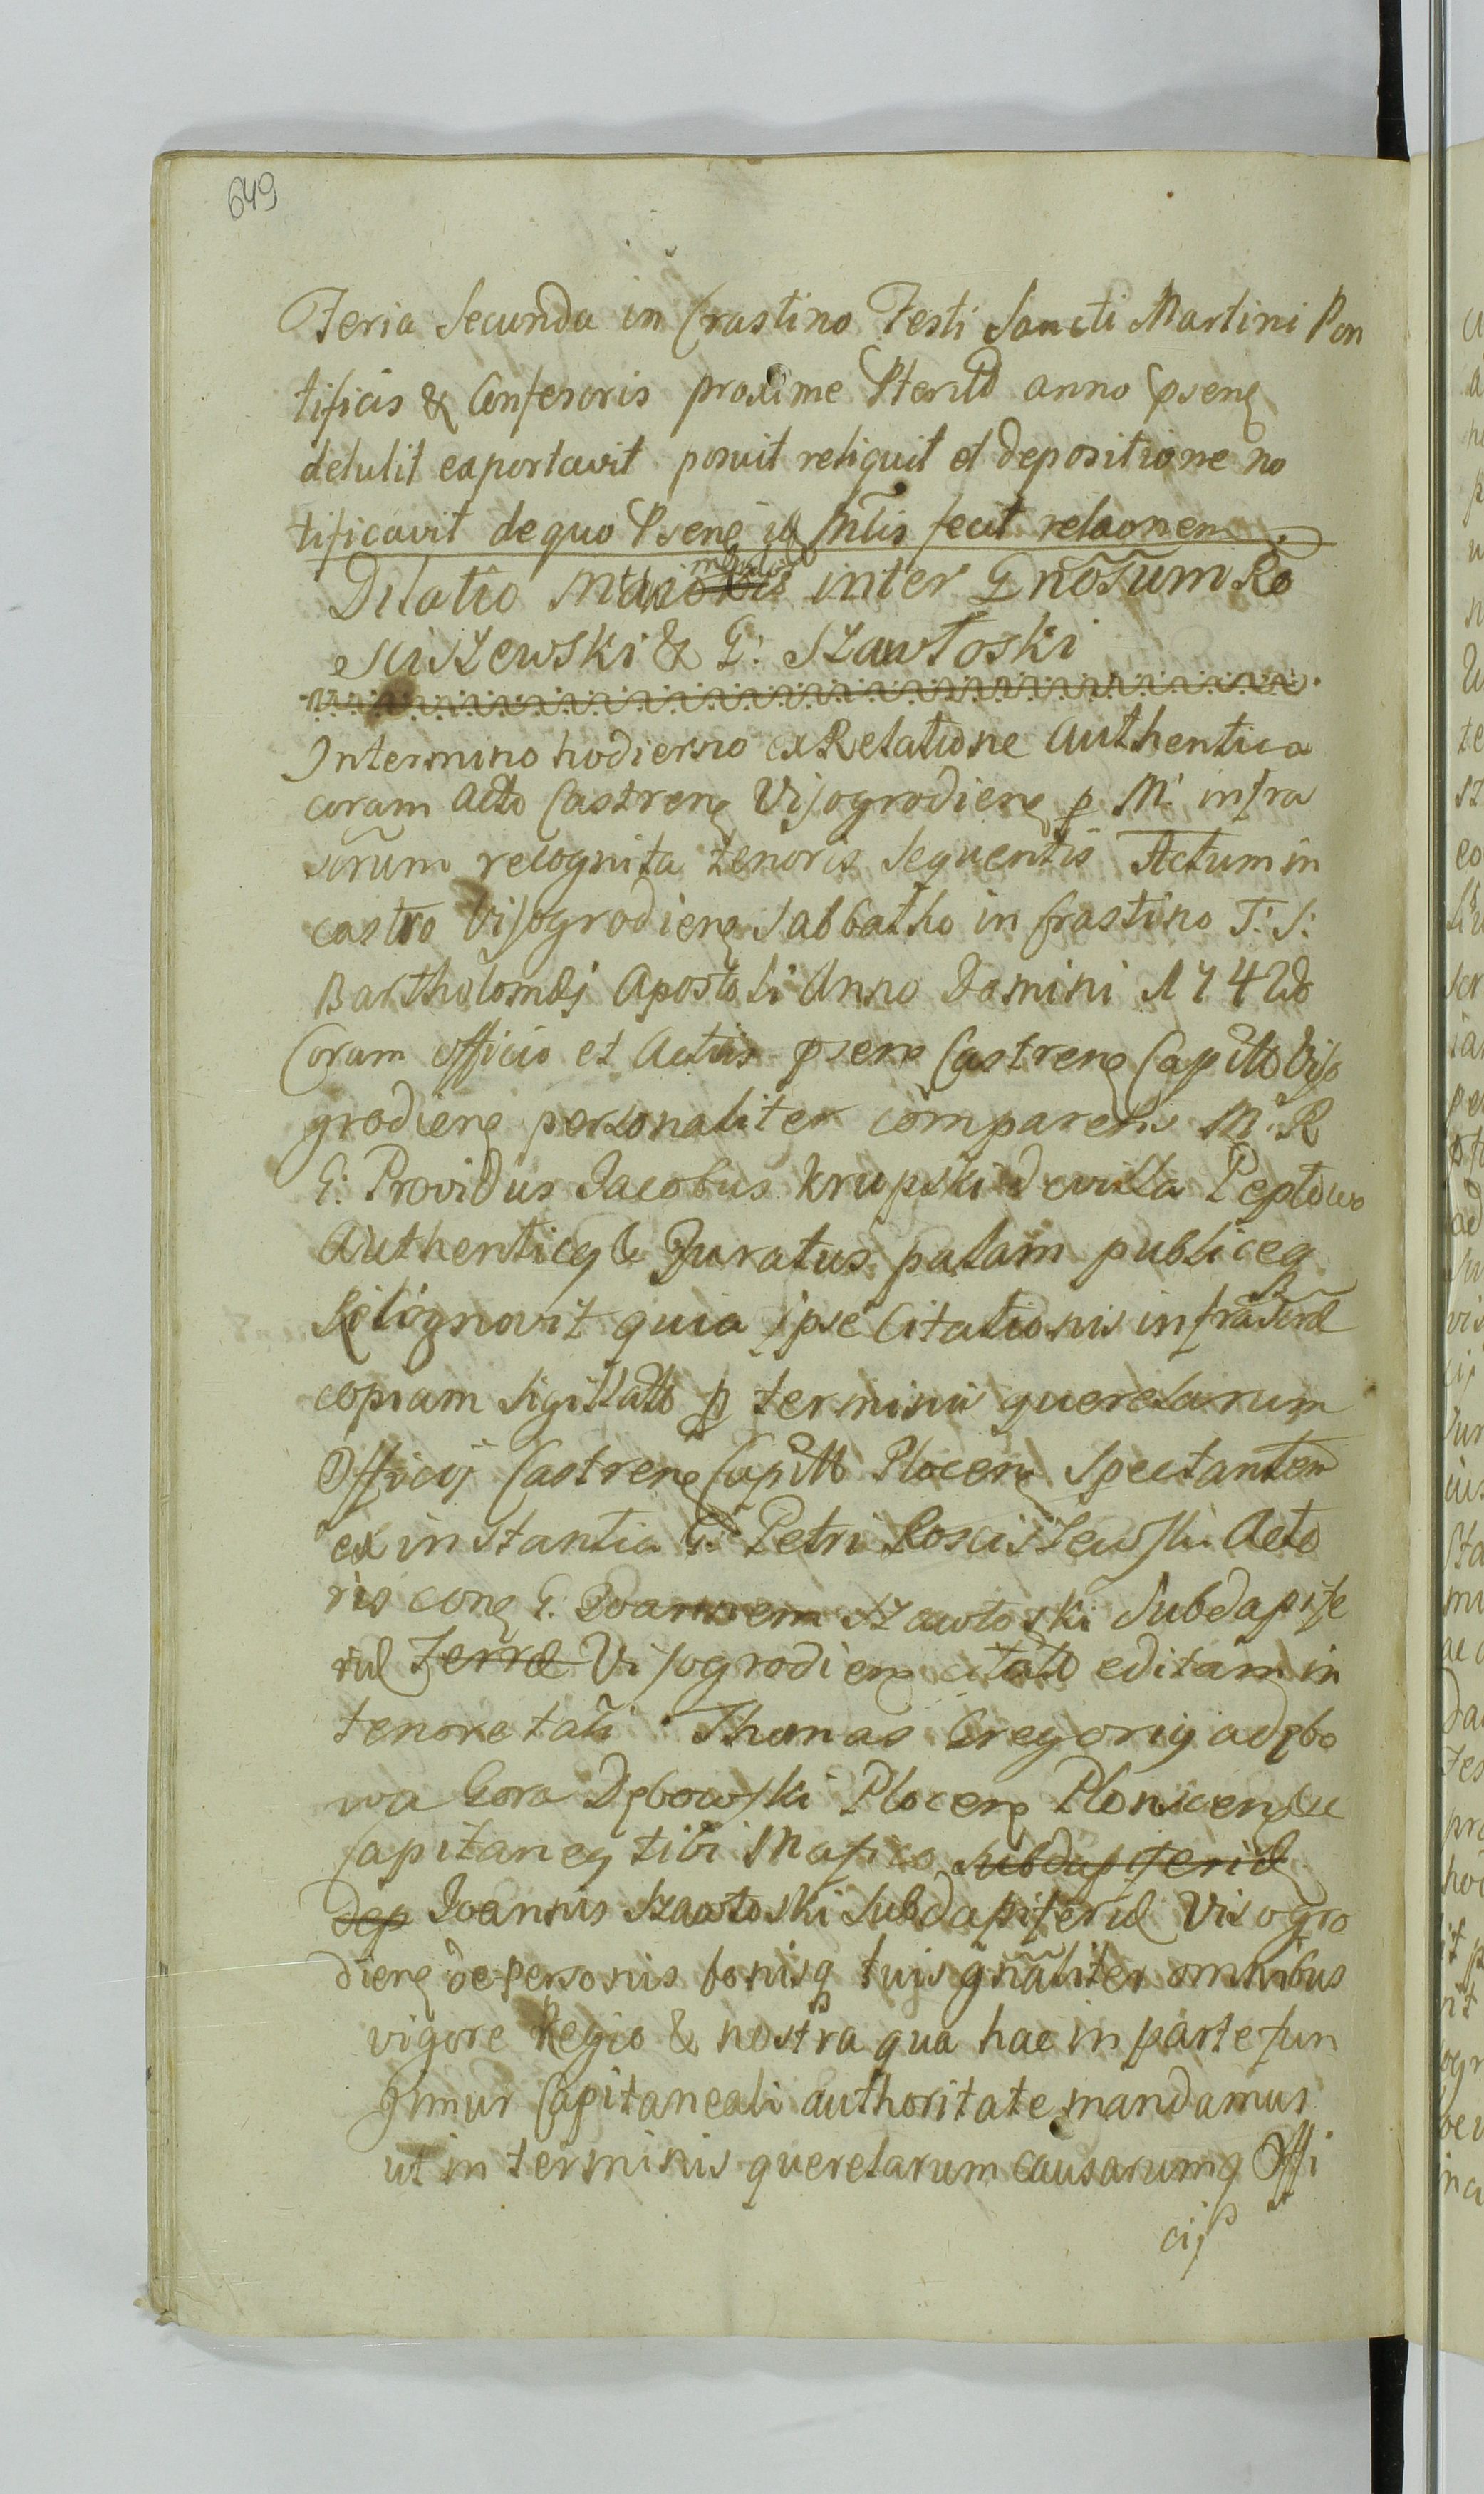 649
Feria Secunda in Crastino Festi Sancti Martini Pon
tificis & Confesoris proxime Pterito anno psenę
detulit exportavit posuit reliquit et depositione no
tificavit de quo Psenę is Mtlis fecit relaonem
Dilatio inter Gnosum Ro
sciszewski & G: Szawłoski
Intermino hodierno ex Relatione Authentica
coram Actis Castrenę Vijogrodienę p M: infra
scrum recognita tenoris sequentis Actum in
castro Vijogrodienę Sabbatho in Crastino F: S:
Bartholomęi Apostoli Anno Domini 1742do
Coram officio et Actis psenę Castrenę Captto Vijo
grodienę personaliter comparens M: R
G: Providus Jacobus Krupski de villa Peptowo
Authenticq & Juratus palam publiceq
Recognovit quia ipse Citationis infrascrae
copiam Sigillatto p terminu querelarum
Officij Castrenę Captto Plocenę Spectantem
ex instantia G: Petri Rosciszewski Acto
ris conę G: Joannem Szawłoski Subdapife
rul Terrae Vijogrodienę citato editam in
tenore tali Thomas Gregorij a Dębo
wa Gora Dębowski Plocenę Płonscenę
Capitaneq tibi Mafico Subdapiferul
Dep Joannis Szawłoski Subdapiferul Visogro
dienę de personis bonisq tuis gnaliter omnibus
vigore Regio & nostra qua hac in parte fun
gimur Capitaneali authoritate mandamus
ut in terminis querelarum causarumq Offi
cij